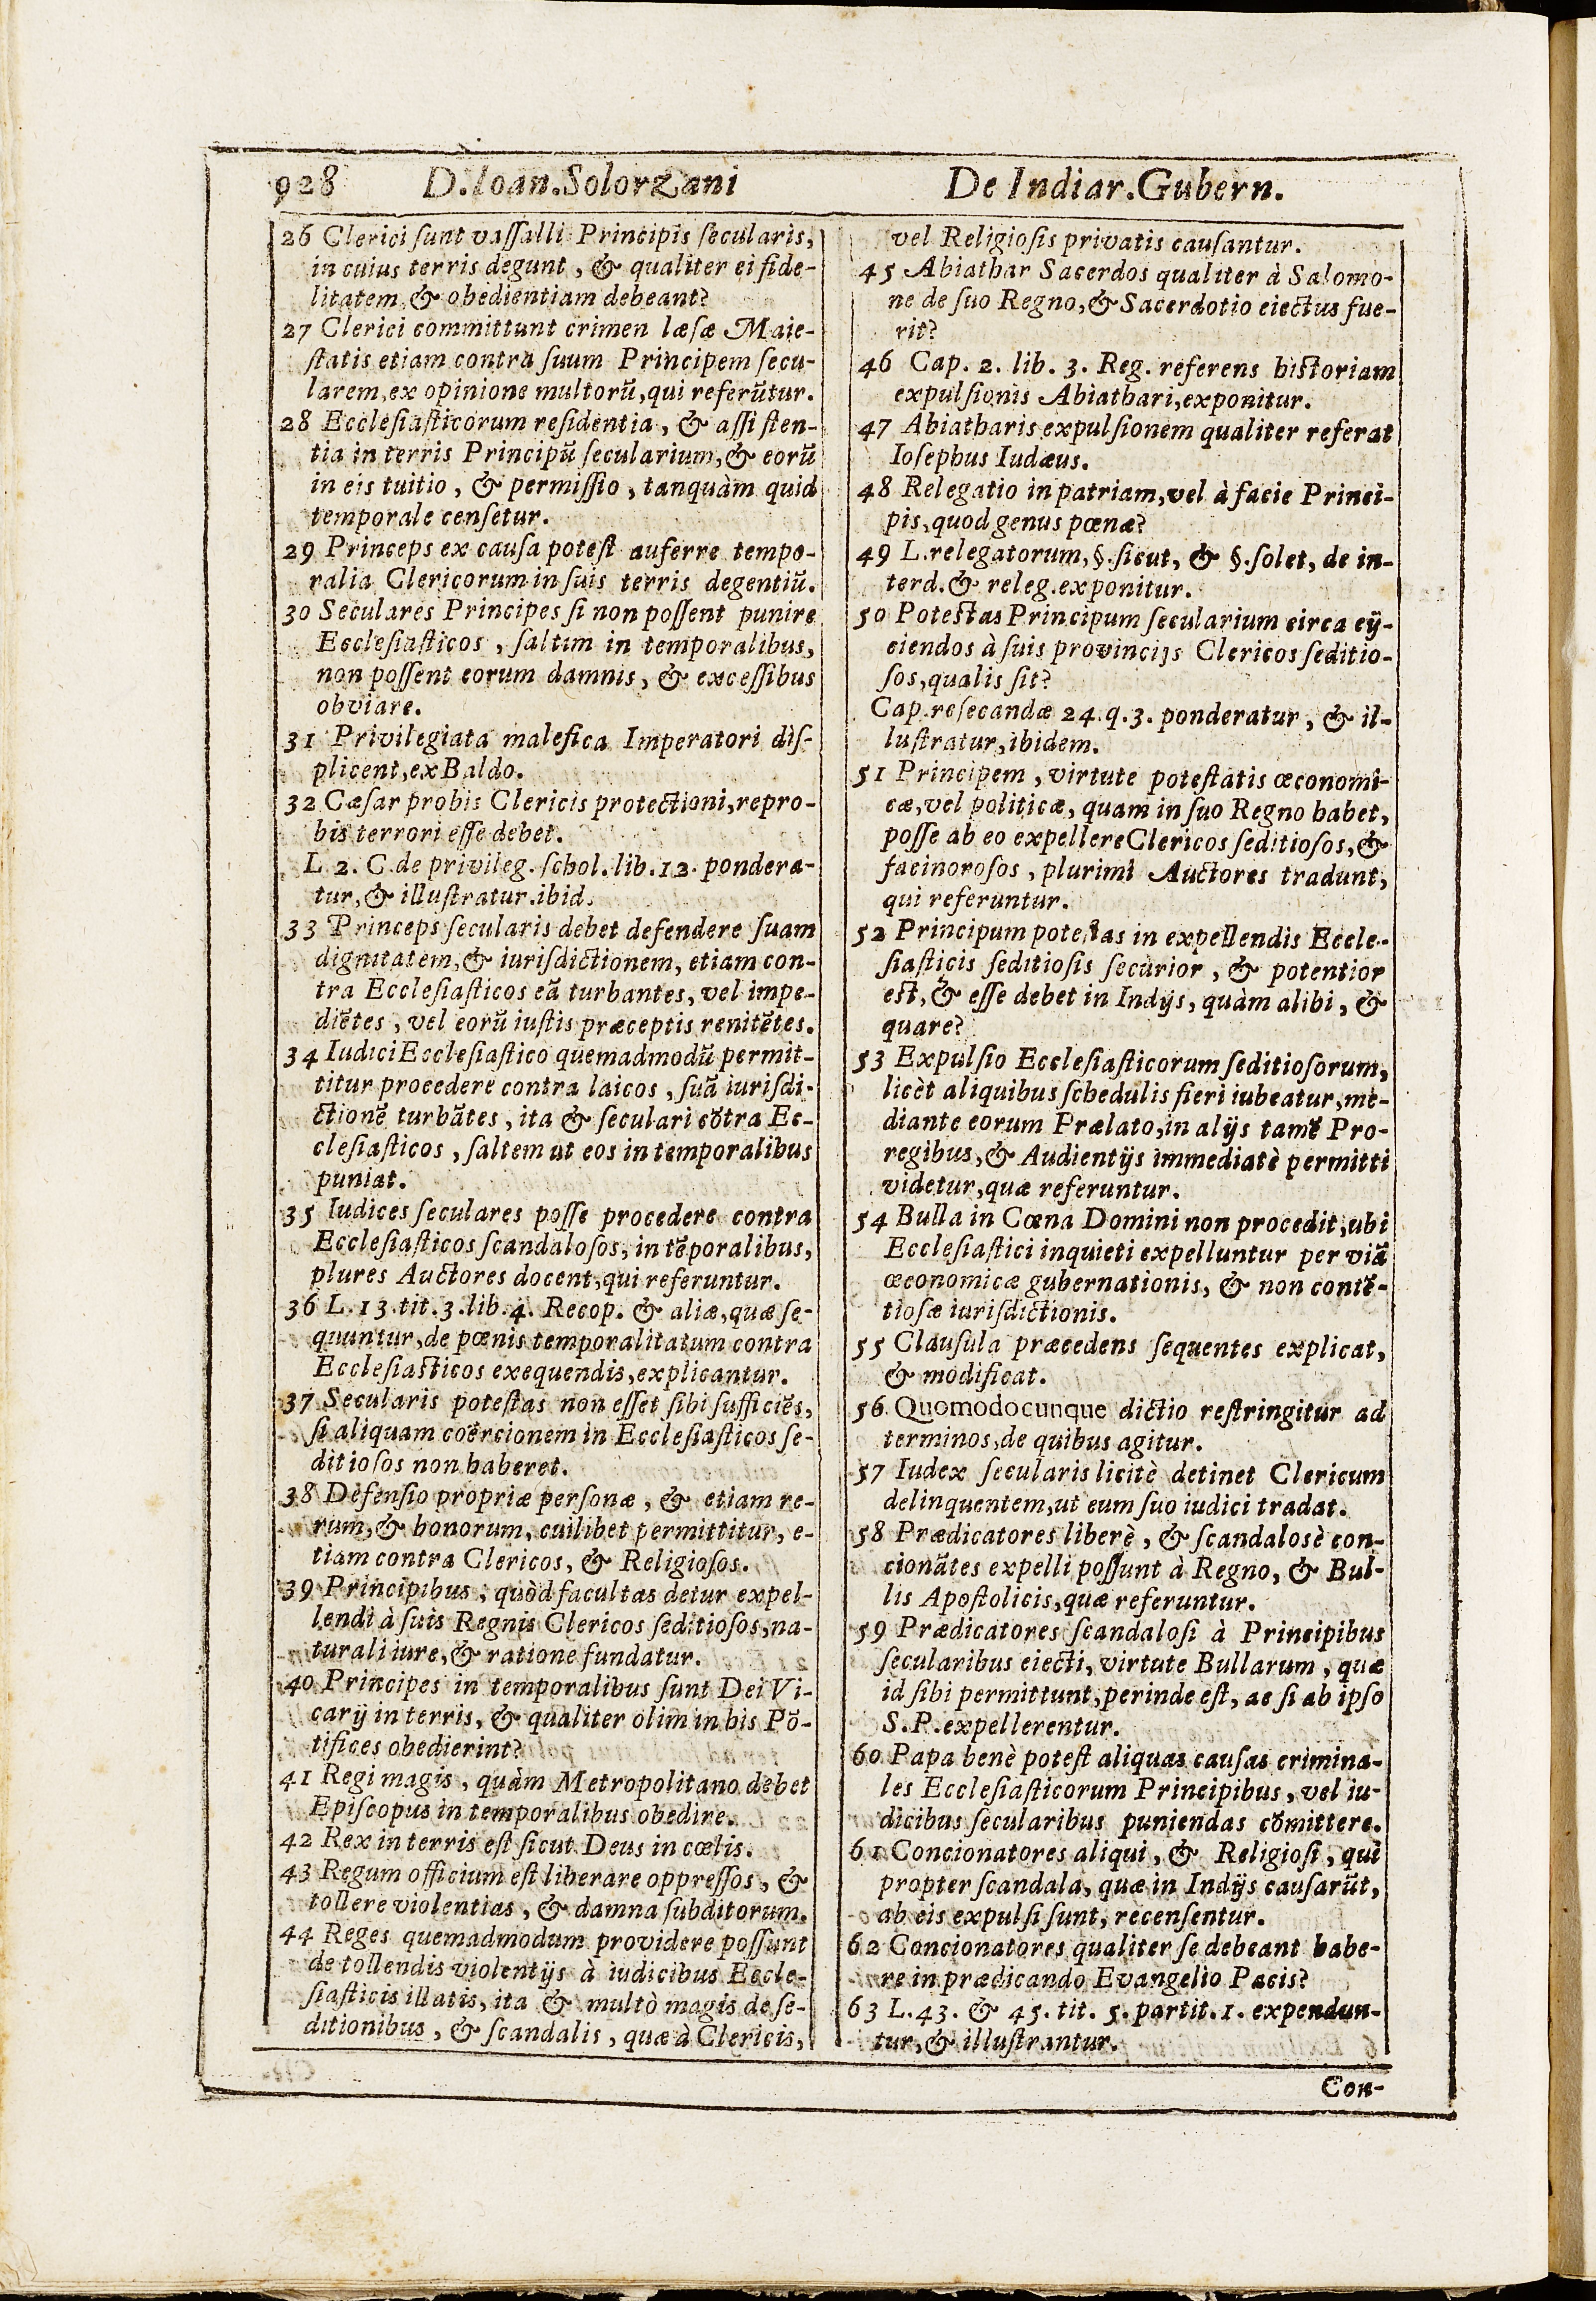 928 D.Ioan.Solorzani De Indiar.Gubern.
26 Clerici ſunt vaſſalli Principis ſecularis,
in cuius terris degunt, & qualiter ei fide-
litatem, & obedientiam debeant?
27 Clerici committunt crimen læſæ Maie-
ſtatis etiam contra ſuum Principem ſecu-
larem, ex opinione multorũ, qui referũtur.
28 Eccleſiaſticorum reſidentia, & aſſiſten-
tia in terris Principũ ſecularium, & eorũ
in eis tuitio, & permiſſio, tanquàm quid
temporale cenſetur.
29 Princeps ex cauſa poteſt auferre tempo-
ralia Clericorum in ſuis terris degentiũ.
30 Seculares Principes ſi non poſſent punire
Eccleſiaſticos, ſaltim in temporalibus,
non poſſent eorum damnis, & exceſſibus
obviare.
31 Privilegiata malefica Imperatori diſ-
plicent, ex Baldo.
32 Cæſar probis Clericis protectioni, repro-
bis terrori eſſe debet.
L 2. C. de privileg. ſchol. lib. 12. pondera-
tur, & illuſtratur. ibid.
33 Princeps ſecularis debet defendere ſuam
dignitatem, & iuriſdictionem, etiam con-
tra Eccleſiaſticos eã turbantes, vel impe-
diẽtes, vel eorũ iuſtis præceptis renitẽtes.
34 Iudici Eccleſiaſtico quemadmodũ permit-
titur procedere contra laicos, ſuã iuriſdi-
ctionẽ turbãtes, ita & ſeculari cõtra Ec-
cleſiaſticos, ſaltem ut eos in temporalibus
puniat.
35 Iudices ſeculares poſſe procedere contra
Eccleſiaſticos ſcandaloſos, in tẽporalibus,
plures Auctores docent, qui referuntur.
36 L. 13. tit. 3. lib. 4. Recop. & aliæ, quæ ſe-
quuntur, de pœnis temporalitatum contra
Eccleſiaſticos exequendis, explicantur.
37 Secularis poteſtas non eſſet ſibi ſufficiẽs,
ſi aliquam coërcionem in Eccleſiaſticos ſe-
ditioſos non haberet.
38 Defenſio propriæ perſonæ, & etiam re-
rum, & bonorum, cuilibet permittitur, e-
tiam contra Clericos, & Religioſos.
39 Principibus, quòd facultas detur expel-
lendi à ſuis Regnis Clericos ſeditioſos, na-
turali iure, & ratione fundatur.
40 Principes in temporalibus ſunt Dei Vi-
carij in terris, & qualiter olim in his Põ-
tifices obedierint?
41 Regi magis, quàm Metropolitano debet
Epiſcopus in temporalibus obedire.
42 Rex in terris eſt ſicut Deus in cœlis.
43 Regum officium eſt liberare oppreſſos, &
tollere violentias, & damna ſubditorum.
44 Reges quemadmodum providere poſſunt
de tollendis violentijs à iudicibus Eccle-
ſiaſticis illatis, ita & multò magis de ſe-
ditionibus, & ſcandalis, quæ à Clericis,
vel Religioſis privatis cauſantur.
45 Abiathar Sacerdos qualiter à Salomo-
ne de ſuo Regno, & Sacerdotio eiectus fue-
rit?
46 Cap. 2. lib. 3. Reg. referens hiſtoriam
expulſionis Abiathari, exponitur.
47 Abiatharis expulſionem qualiter referat
Ioſephus Iudæus.
48 Relegatio in patriam, vel à facie Princi-
pis, quod genus pœnæ?
49 L. relegatorum, §. ſicut, & §. ſolet, de in-
terd. & releg. exponitur.
50 Poteſtas Principum ſecularium circa eij-
ciendos à ſuis provincijs Clericos ſeditio-
ſos, qualis ſit?
Cap. reſecandæ 24. q. 3. ponderatur, & il-
luſtratur, ibidem.
51 Principem, virtute poteſtatis œconomi-
cæ, vel politicæ, quam in ſuo Regno habet,
poſſe ab eo expellere Clericos ſeditioſos, &
facinoroſos, plurimi Auctores tradunt,
qui referuntur.
52 Principum poteſtas in expellendis Eccle-
ſiaſticis ſeditioſis ſecurior, & potentior
eſt, & eſſe debet in Indijs, quàm alibi, &
quare?
53 Expulſio Eccleſiaſticorum ſeditioſorum,
licèt aliquibus ſchedulis fieri iubeatur, me-
diante eorum Prælato, in alijs tamẽ Pro-
regibus, & Audientijs immediatè permitti
videtur, quæ referuntur.
54 Bulla in Cœna Domini non procedit, ubi
Eccleſiaſtici inquieti expelluntur per viã
œconomicæ gubernationis, & non contẽ-
tioſæ iuriſdictionis.
55 Clauſula præcedens ſequentes explicat,
& modificat.
56 Quomodocunque dictio reſtringitur ad
terminos, de quibus agitur.
57 Iudex ſecularis licitè detinet Clericum
delinquentem, ut eum ſuo iudici tradat.
58 Prædicatores liberè, & ſcandalosè con-
cionãtes expelli poſſunt à Regno, & Bul-
lis Apoſtolicis, quæ referuntur.
59 Prædicatores ſcandaloſi à Principibus
ſecularibus eiecti, virtute Bullarum, quæ
id ſibi permittunt, perinde eſt, ac ſi ab ipſo
S. P. expellerentur.
60 Papa benè poteſt aliquas cauſas crimina-
les Eccleſiaſticorum Principibus, vel iu-
dicibus ſecularibus puniendas cõmittere.
61 Concionatores aliqui, & Religioſi, qui
propter ſcandala, quæ in Indijs cauſarũt,
ab eis expulſi ſunt, recenſentur.
62 Concionatores qualiter ſe debeant habe-
re in prædicando Evangelio Pacis?
63 L. 43. & 45. tit. 5. partit. 1. expendun-
tur, & illuſtrantur.
Con-